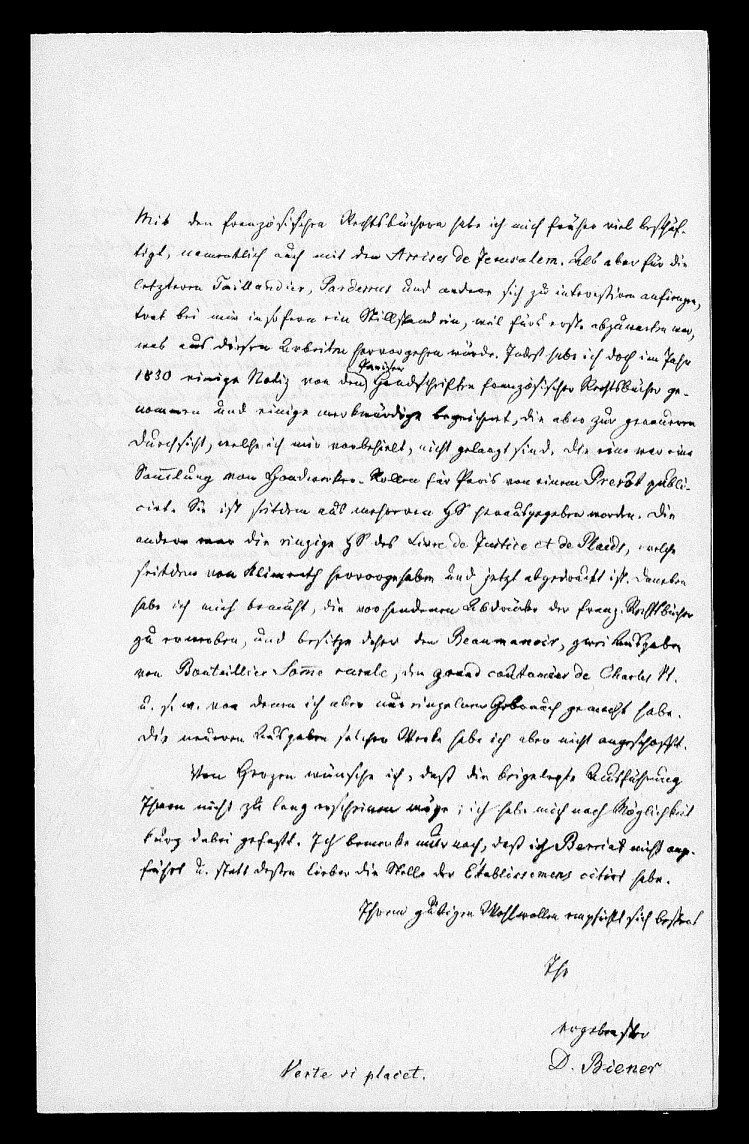 Mit den französischen Rechtsbüchern habe ich mich früher viel beschäf-
tigt, namentlich auch mit den Assises de Jerusalem. Als aber für die
letzteren Taillandier, Pardessus und andere sich zu interessiren anfingen,
trat bei mir insofern ein Stillstand ein, weil fürs erste abzuwarten war,
was aus diesen Arbeiten hervorgehen würde. Indeß habe ich doch im Jahr
Pariser
1830 einige Notiz von den Handschriften französischer Rechtsbücher ge-
nommen und einige merkwürdige bezeichnet, die aber zur genaueren
Durchsicht, welche ich mir vorbehielt, nicht gelangt sind. Die eine war eine
Sammlung von Handwerker-Rollen für Paris von einem Prevôt publi-
cirt. Sie ist seitdem aus mehreren HS herausgegeben worden. Die
andere war die einzige HS des Livre de Justice et de Plaids, welche
seitdem von Klimrath hervorgehoben und jetzt abgedruckt ist. Daneben
habe ich mich bemüht, die vorhandenen Abdrücke der franz. Rechtsbücher
zu erwerben, und besitze daher den Beaumanoir, zwei Ausgaben
von Bouteillier Some rurale, den grand coutumier de Charles VI.
u. s. w. von denen ich aber nur einzelnen Gebrauch gemacht habe.
Die neueren Ausgaben solcher Werke habe ich aber nicht angeschafft.
Von Herzen wünsche ich, daß die beigelegte Ausführung
Ihnen nicht zu lang erscheinen möge; ich habe mich nach Möglichkeit
kurz dabei gefaßt. Ich bemerke nur noch, daß ich Berriat nicht ange-
führt u. statt dessen lieber die Stelle der Établissemens citirt habe.
Ihrem gütigen Wohlwollen empfiehlt sich bestens
Ihr
ergebenster
D. Biener
Verte si placet.